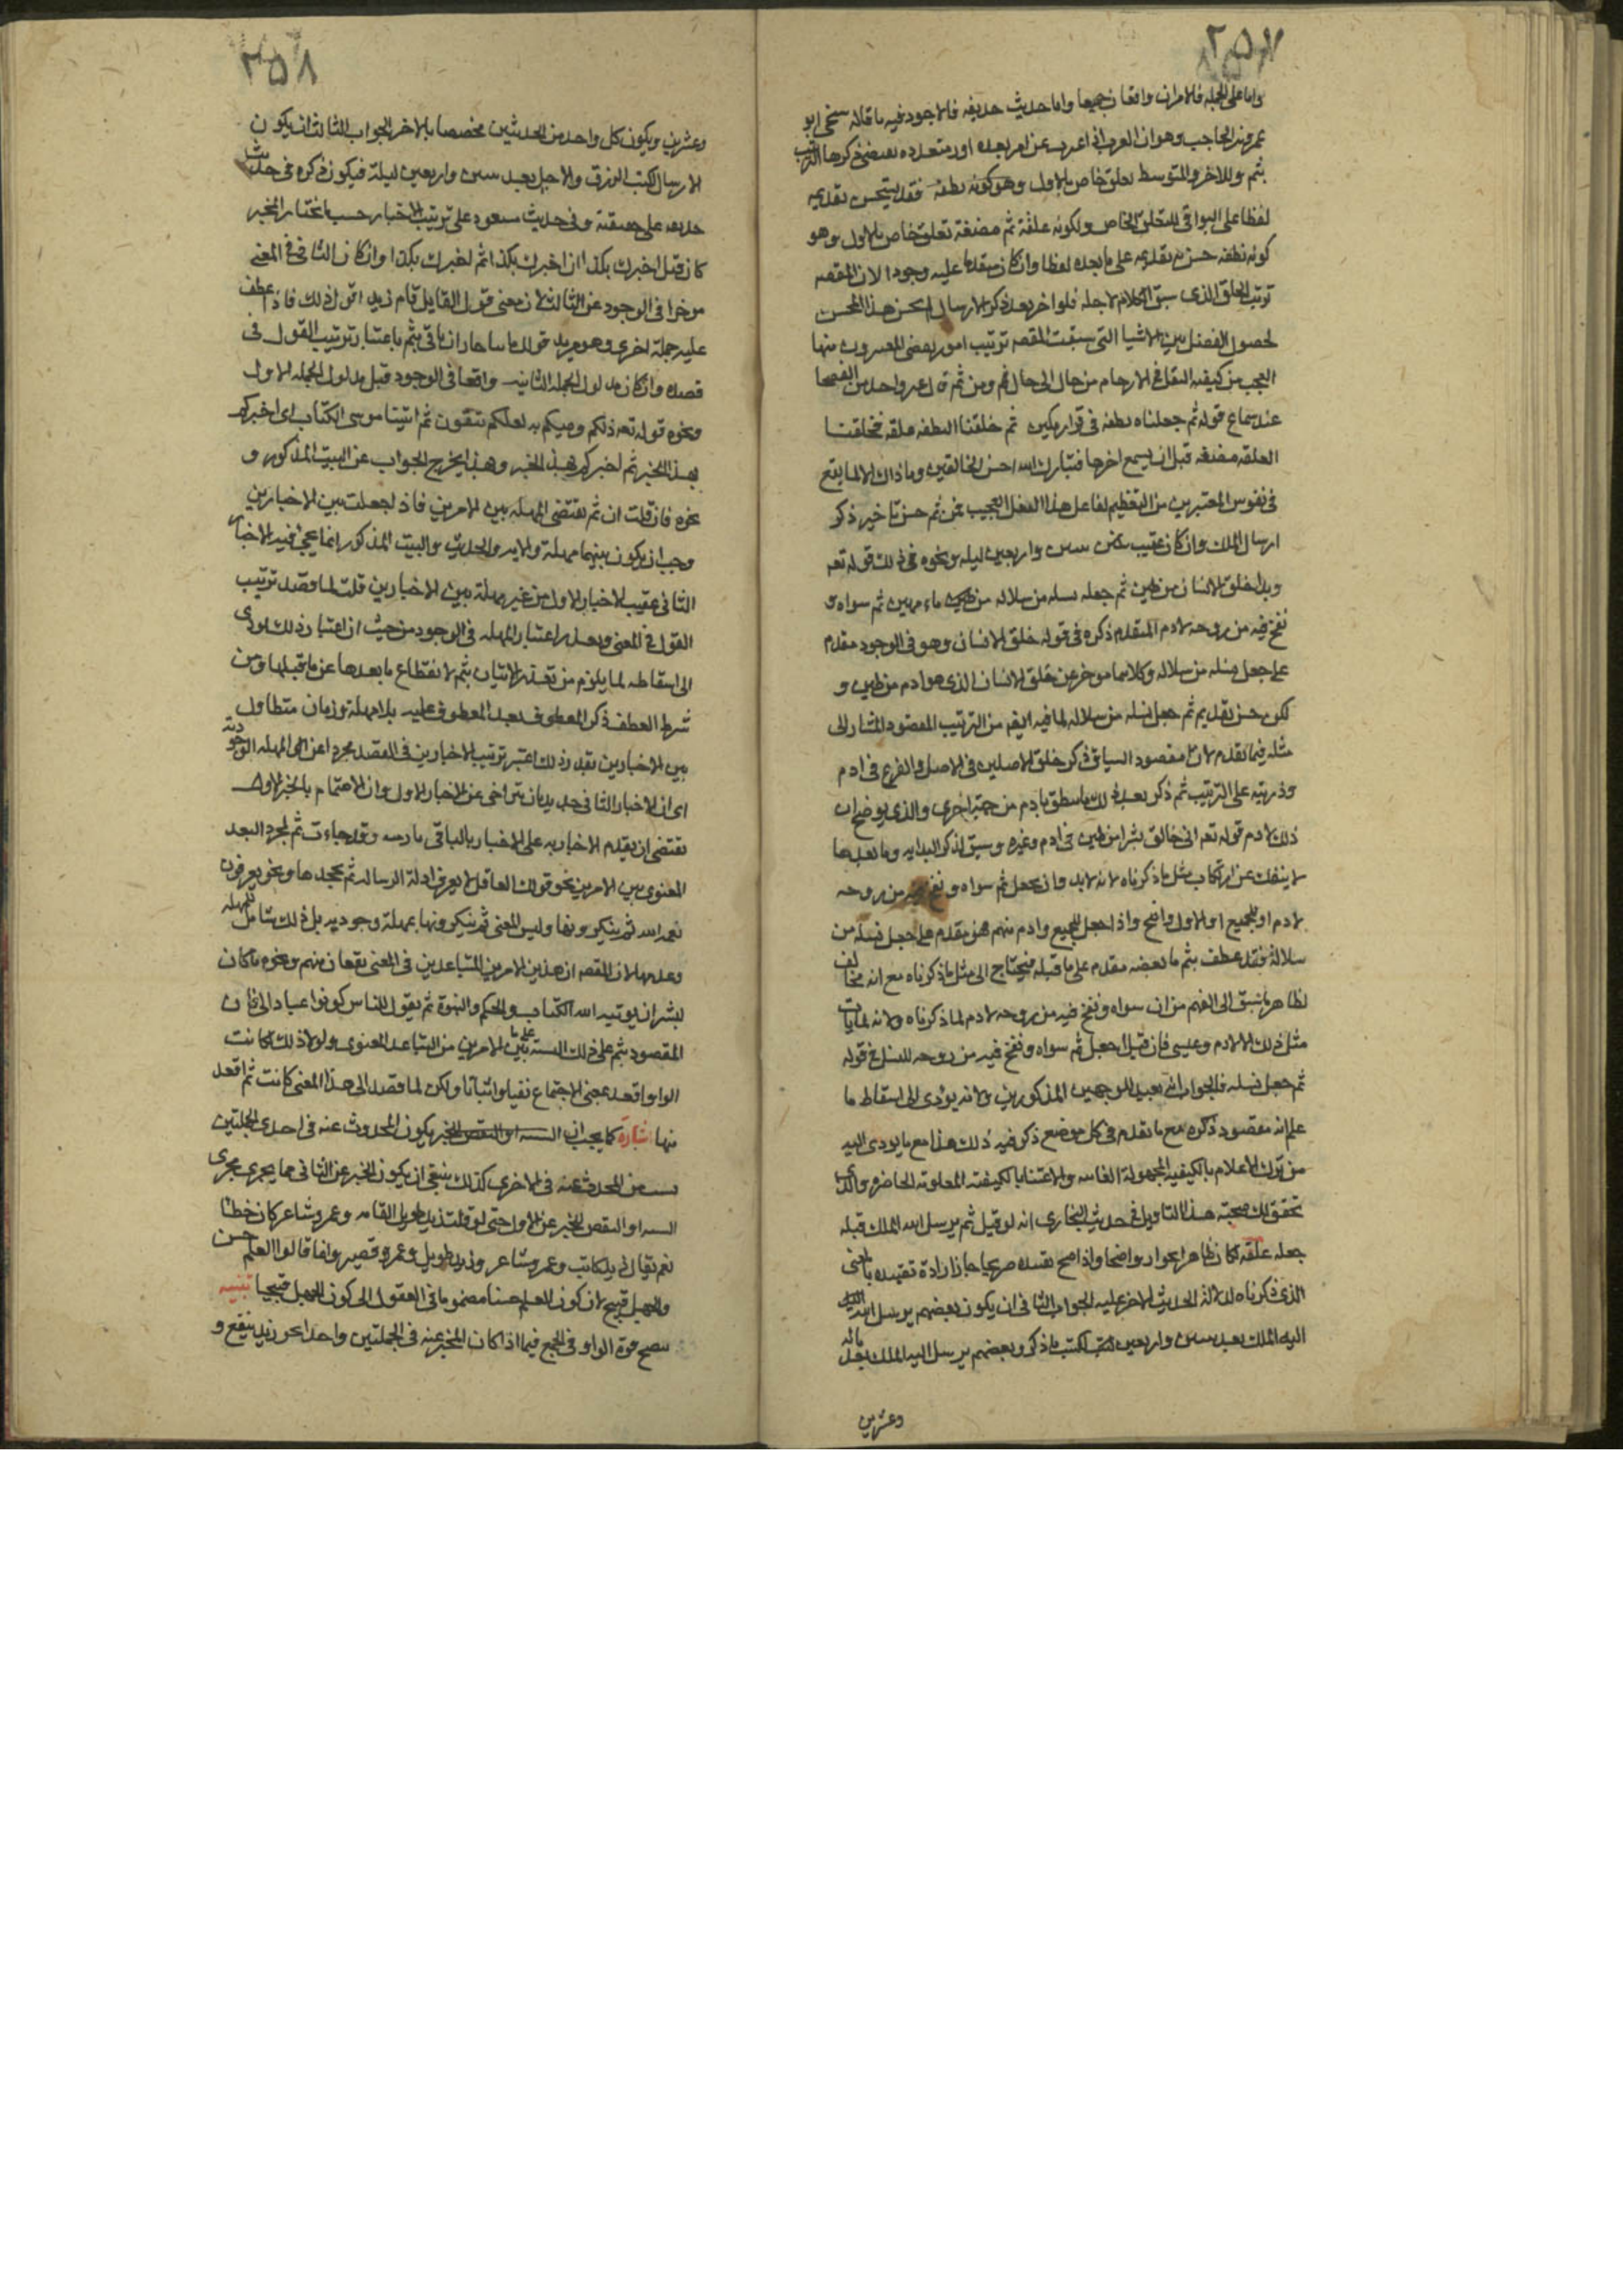 ٢٥٧
واما على الجملة فالامران واقعان جميعا واما حديث حذيفه فالاجود فيه ما قاله شيخى ابو
عمرو بن الحاجب وهو ان العرب اذا عبرت عن امر بعده امور متعدده بعضى ذكرها الترتيب
بثم وللاخر والمتوسط تعلق خاص بالاول وهو كونه نطفه فقد يستحسن تقديمه
لفظا على البواقى للتعلق الخاص ولكونه علقة ثم مضغة تعلق خاص بالاول وهو
كونه نطفه حسن تقديمه على ما بعده لفظا وان كان متقدما عليه وجودا لان المقصد
ترتيب الخلق الذى سبق الكلام لاجله فلو اخر بعد ذكر الارسال لم يحسن هذا الحسن
لحصول الفصل بين الاشيا التى سيقت المقصد ترتيب امور بعضى المفسرون منها
العجب من كيفيه النقل فى الارحام من حال الى حال ثم ومن ثم قال غير واحد من الفصحا
عند سماع قوله ثم جعلناه نطفه فى قرار مكين ثم خلقنا النطفه علقه فخلقنا
العلقه مضغه قبل ان يسمع اخرها فتبارك الله احسن الخالقين وما ذاك الا لما يقع
فى نفوس المعتبرين من التعظيم لفاعل هذا الفعل العجيب فمن ثم حسن تاخير ذكر
ارسال الملك وان كان عقيب مضى ستين واربعين ليله ونحوه فى ذلك قوله تعه
وبدا خلق الانسان من طين ثم جعله نسله من سلاله من ماء مهين ثم سواه و
نفخ فيه من روحه لادم المتقدم ذكره فى قوله خلق الانسان وهو فى الوجود مقدم
على جعل نسله من سلاله وكلاهما موخر عن خلق الانسان الذى هو ادم من طين و
لكن حسن تقديم ثم جعل نسله من سلاله لما فيه ايضا من الترتيب المقصود المشار الى
مثله فيما تقدم لان مقصود السياق ذكر خلق الاصلين فى الاصل والفرع فى ادم
وذريته على الترتيب ثم ذكر بعد ذلك ما يتعلق بادم من جهة اخرى والذى يوضح ان
ذلك لادم قوله تعه انى خالق بشرا من طين فى ادم وغيره وسبق لذكر البدايه وما بعدها
لا ينفك عن ارتكاب مثل ما ذكرناه لانه لابد وان يجعل ثم سواه ونفخ فيه من روحه
لادم او للجميع او الاول واضح واذا جعل للجميع وادم منهم فهو مقدم على جعل نسله من
سلالة فقد عطف بثم ما بعضه مقدم على ما قبله فيحتاج الى مثل ما ذكرناه مع انه مخالف
لظاهر ما سبق الى الفهم من ان سواه ونفخ فيه من روحه لادم لما ذكرناه ولانه لم يات
مثل ذلك الا لادم وعيسى فان قيل اجعل ثم سواه ونفخ فيه من روحه للنسل فى قوله
ثم جعل نسله فالجواب انه بعيد للوجهين المذكورين ولانه يؤدى الى اسقاط ما
علم انه مقصود ذكره مع ما تقدم فى كل موضع ذكر فيه ذلك هذا مع ما يودى اليه
من ترك الاعلام بالكيفيه المجهولة الغايبه والاعتنا بالكيفية المعلومة الحاضره والذى
تحقق لك صحة هذا التاويل فى حديث البخارى انه لو قيل ثم يرسل الله الملك قبله
جعله علقه لكان ظاهرا بجوار واضحا واذا صح تفسده صريحا جاز ارادة تقييده بالمعنى
الذى ذكرناه لدلالة الحديث الاخر عليه الجواب الثانى ان يكون بعضهم يرسل الله
اليه الملك بعد ستين واربعين ليكتب ما ذكر وبعضهم يرسل اليه الملك بعد مائه
وعشرين
٢٥٨
وعشرين ويكون كل واحد من الحديثين مخصصا بالاخر الجواب الثالث ان يكون
الارسال لكتب الرزق والاجل بعد ستين واربعين ليلة فيكون ذكره فى حديث
حذيفه على حقيقته وفى حديث مسعود على ترتيب الاخبار حسب ما يختار المخبر
كان قيل اخبرك بكذا ان اخبرك بكذا ثم اخبرك بكذا وان كان الثانى فى المعنى
موخرا فى الوجود عن الثالث لان معنى قول القايل قام زيد اقول ذلك فاذا عطف
عليه جملة اخرى وهو يريد قولك ما سا جاز ان ياتى بثم باعتبار ترتيب القول فى
قصده وان كان مدلول الجمله الثانيه واقعا فى الوجود قبل مدلول الجمله الاول
ونحوه قوله تعه ذلكم وصيكم به لعلكم تتقون ثم اتينا موسى الكتاب اى اخبركم
بهذا الخبر ثم اخبركم بهذا الخبر وهذا يخرج الجواب عن البيت المذكور و
نحوه فان قلت ان ثم تقتضى المهله بين الامرين فاذا جعلت بين الاخبارين
وجب ان يكون بينهما مهلة والايه والحديث والبيت المذكور انما يجئ فيه الاخبار
الثانى عقيب الاخبار الاول من غير مهلة بين الاخبارين قلت لما قصد ترتيب
القول فى المعنى وتعذر اعتبار المهله فى الوجود من حيث ان اعتبار ذلك يودى
الى اسقاطه لما يلزم من تعذر الاتيان بثم لانقطاع ما بعدها عن ما قبلها ومن
شرط العطف ذكر المعطوف بعد المعطوف عليه بلا مهلة وزمان متطاول
بين الاخبارين بقدر ذلك اعتبر ترتيب الاخبارين فى القصد مجردا عن المهله الوجوديه
اى ان الاخبار الثانى جدير بان يتراخى عن الاخبار الاول وان الاهتمام بالخبر الاول
تقتضى ان يقدم الاخبار به على الاخبار بالباقى وقد جاءت ثم لمجرد البعد
المعنوى بين الامرين نحو قولك العاقل لا يعرف ادلة الرساله ثم يجحدها ونحو يعرفون
نعمه الله ثم ينكرونها وليس المعنى ثم ينكرونها بمهلة وجوديه بل ذلك شامل للمهله
وعدمها لان القصد ان هذين الامرين المتباعدين فى المعنى يقعان منهم ونحوه ما كان
لبشر ان يوتيه الله الكتاب والحكم والنبوة ثم يقول للناس كونوا عبادا لى فان
المقصود بثم على ذلك التنبيه على ما بين الامرين من التباعد المعنوى ولولا ذلك لكانت
الواو اقعد بمعنى الاجتماع نفيا واثباتا ولكن لما قصد الى هذا المعنى كانت ثم اقعد
منها اشارة كما يجب ان يكون المحدوث عنه فى احدى الجملتين
بسبب من المحدث عنه فى الاخرى كذلك ينبغى ان يكون الخبر عن الثانى مما يجرى مجرى
الشبه او النقيض للخبر عن الاول حتى لو قلت زيد طويل القامه وعمرو شاعر كان خطا
نعم يقال زيد كاتب وعمرو شاعر وزيد طويل وعمرو قصير وانما قالوا العلم حسن
والجهل قبيح لان كون العلم حسنا مضموما فى العقول الى كون الجهل قبيحا تنبيه
يتضح قوة الواو فى الجمع فيما اذا كان المخبر عنه فى الجملتين واحدا نحو زيد ينفع و